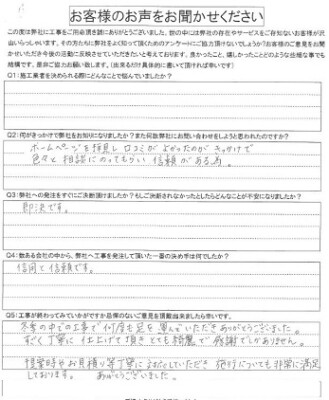 お客様のお声をお聞かせください
この度は弊社に工事をご用命頂き誠にありがとうございました。世の中には弊社の存在やサービスをご存知ないお客様が沢
山いらっしゃいます。その方たちに弊社をよく知って頂くためのアンケートにご協力頂けないでしょうか？お客様のご意見をお聞
かせいただき今後の活動に反映させていただきたいと考えております。良かったこと、嬉しかったことのような些細な事でも
結構です。是非ご協力お願い致します。（出来るだけ具体的に書いて頂ければ幸いです）
Q1：施工業者を決められる際にどんなことで悩んでいましたか？
Q2：何がきっかけで弊社をお知りになりましたか？また何故弊社にお問い合わせをしようと思われたのですか？
ホームページを拝見し 口コミがよかったのがきっかけで
色々と相談にのってもらい 信頼がある為。
Q3：弊社への発注をすぐにご決断頂けましたか？もしご決断されなかったとしたらどんなことが不安になりましたか？
即決です。
Q4：数ある会社の中から、弊社へ工事を発注して頂いた一番の決め手は何でしたか？
信用と信頼です。
Q5：工事が終わってみていかがですか忌憚のないご意見を頂戴出来ましたら幸いです。
の中での工事で何度も足を運んでいただきありがとうございました。
すごく丁寧に仕上げて頂きとても綺麗で感謝でしかありません。
お見積り等丁寧に していただき についても非常に満足
しております。 ありがとうございました。